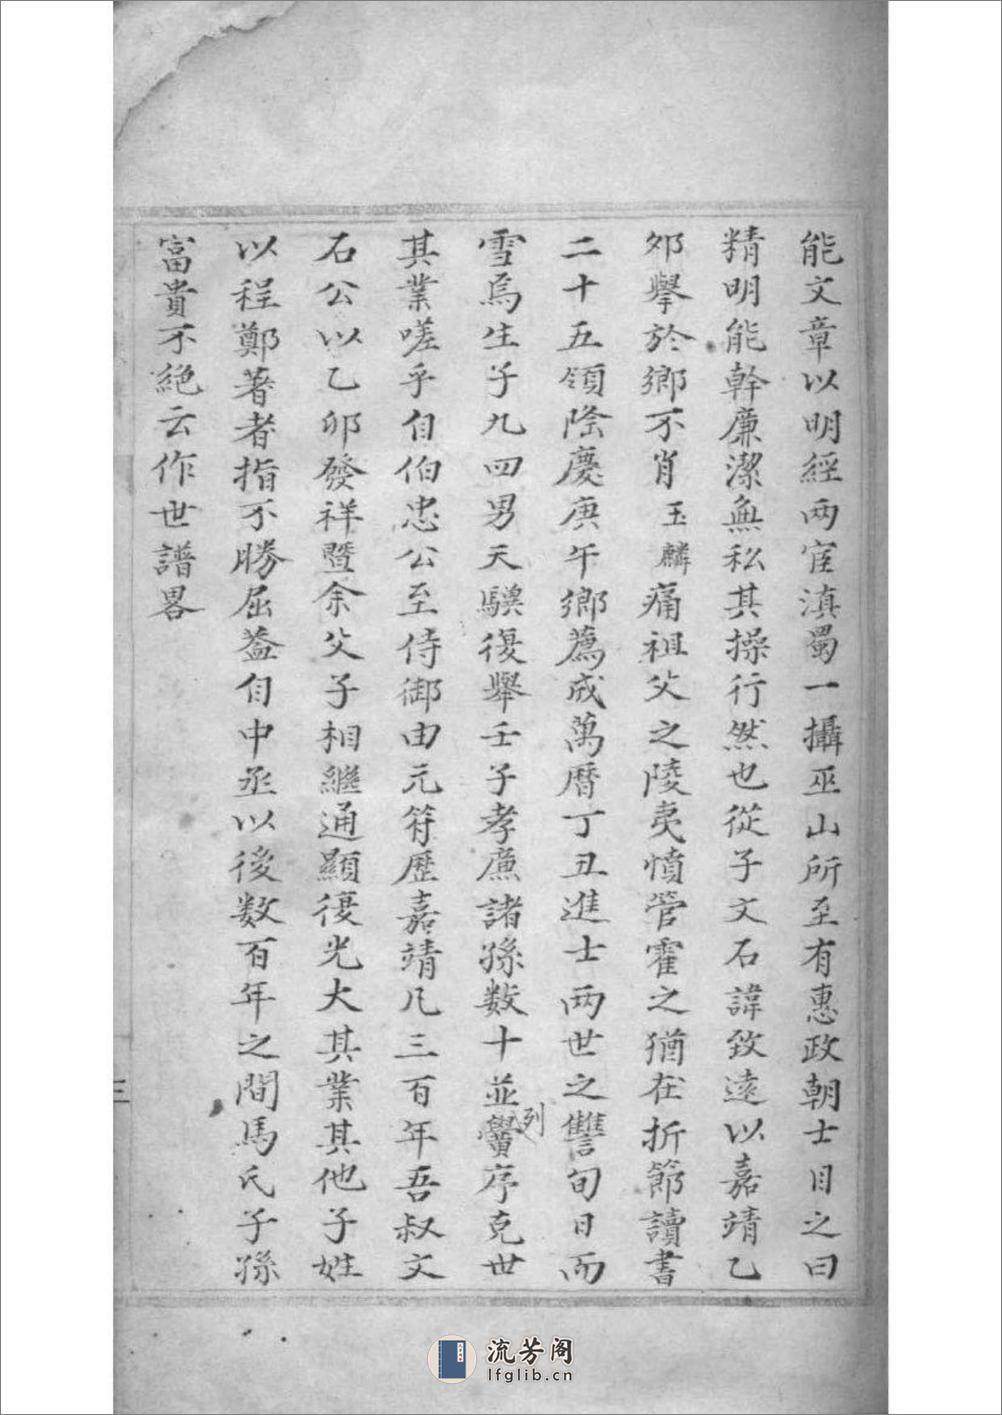 能文章以明經两宦滇蜀一攝巫山所至有惠政朝士目之曰
精明能幹廉潔無私其操行然也從子文石諱致遠以嘉靖乙
夘舉於鄉不肖玉麟痛祖父之陵夷憤管霍之猶在折節讀書
二十五領隆慶庚午鄉薦成萬曆丁丑進士两世之讐旬日而
雪焉生子九四男天騻復舉壬子孝廉諸孫数十並列黌序克世
其業嗟乎自伯忠公至侍御由元符歷嘉靖凡三百年吾叔文
石公以乙卯發祥暨余父子相繼通顯復光大其業其他子姓
以程鄭著者指不勝屈葢自中丞以後数百年之間馬氏子孫
富貴不絕云作世譜畧
三
流芳阁
lfglib.cn